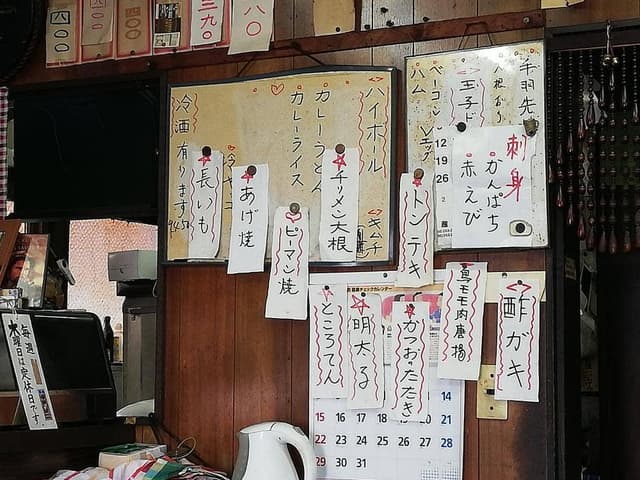 四〇〇
三九〇
八〇
手羽先
大根おろし
玉子
ベーコン
ハム
エッグ
刺身
かんぱち
赤えび
ハイボール
キムチ
カレーうどん
カレーライス
冷酒有ります
チリメン大根
ピーマン焼
あげ焼
長いも
トンテキ
酢ガキ
鳥モモ肉唐揚
かつおのたたき
明太子
ところてん
毎週
木曜日は定休日です
12
19
26
14
15 16 17 18 19 20 21
22 23 24 25 26 27 28
29 30 31